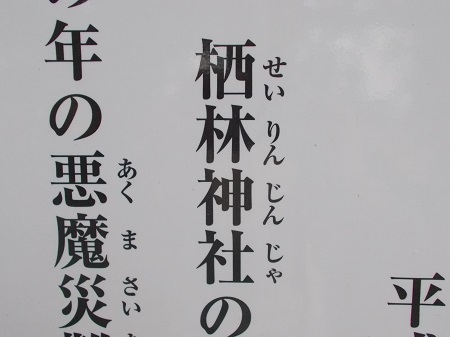 平
栖林神社の
せいりんじんじゃ
年の悪魔災
あくまさい